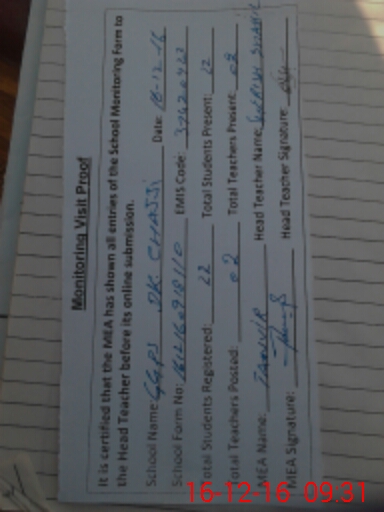 Monitoring Visit Proof
It is certified that the MEA has shown all entries of the School Monitoring Form to
the Head Teacher before its online submission.
School Name: GGPS DK. CHASSI Date: 16-12-16
School Form No: EMIS Code:
Total Students Registered: 22 Total Students Present: 22
Total Teachers Posted: 02 Total Teachers Present: 02
MEA Name: TANVIR Head Teacher Name:
MEA Signature: Head Teacher Signature:
16-12-16 09.31